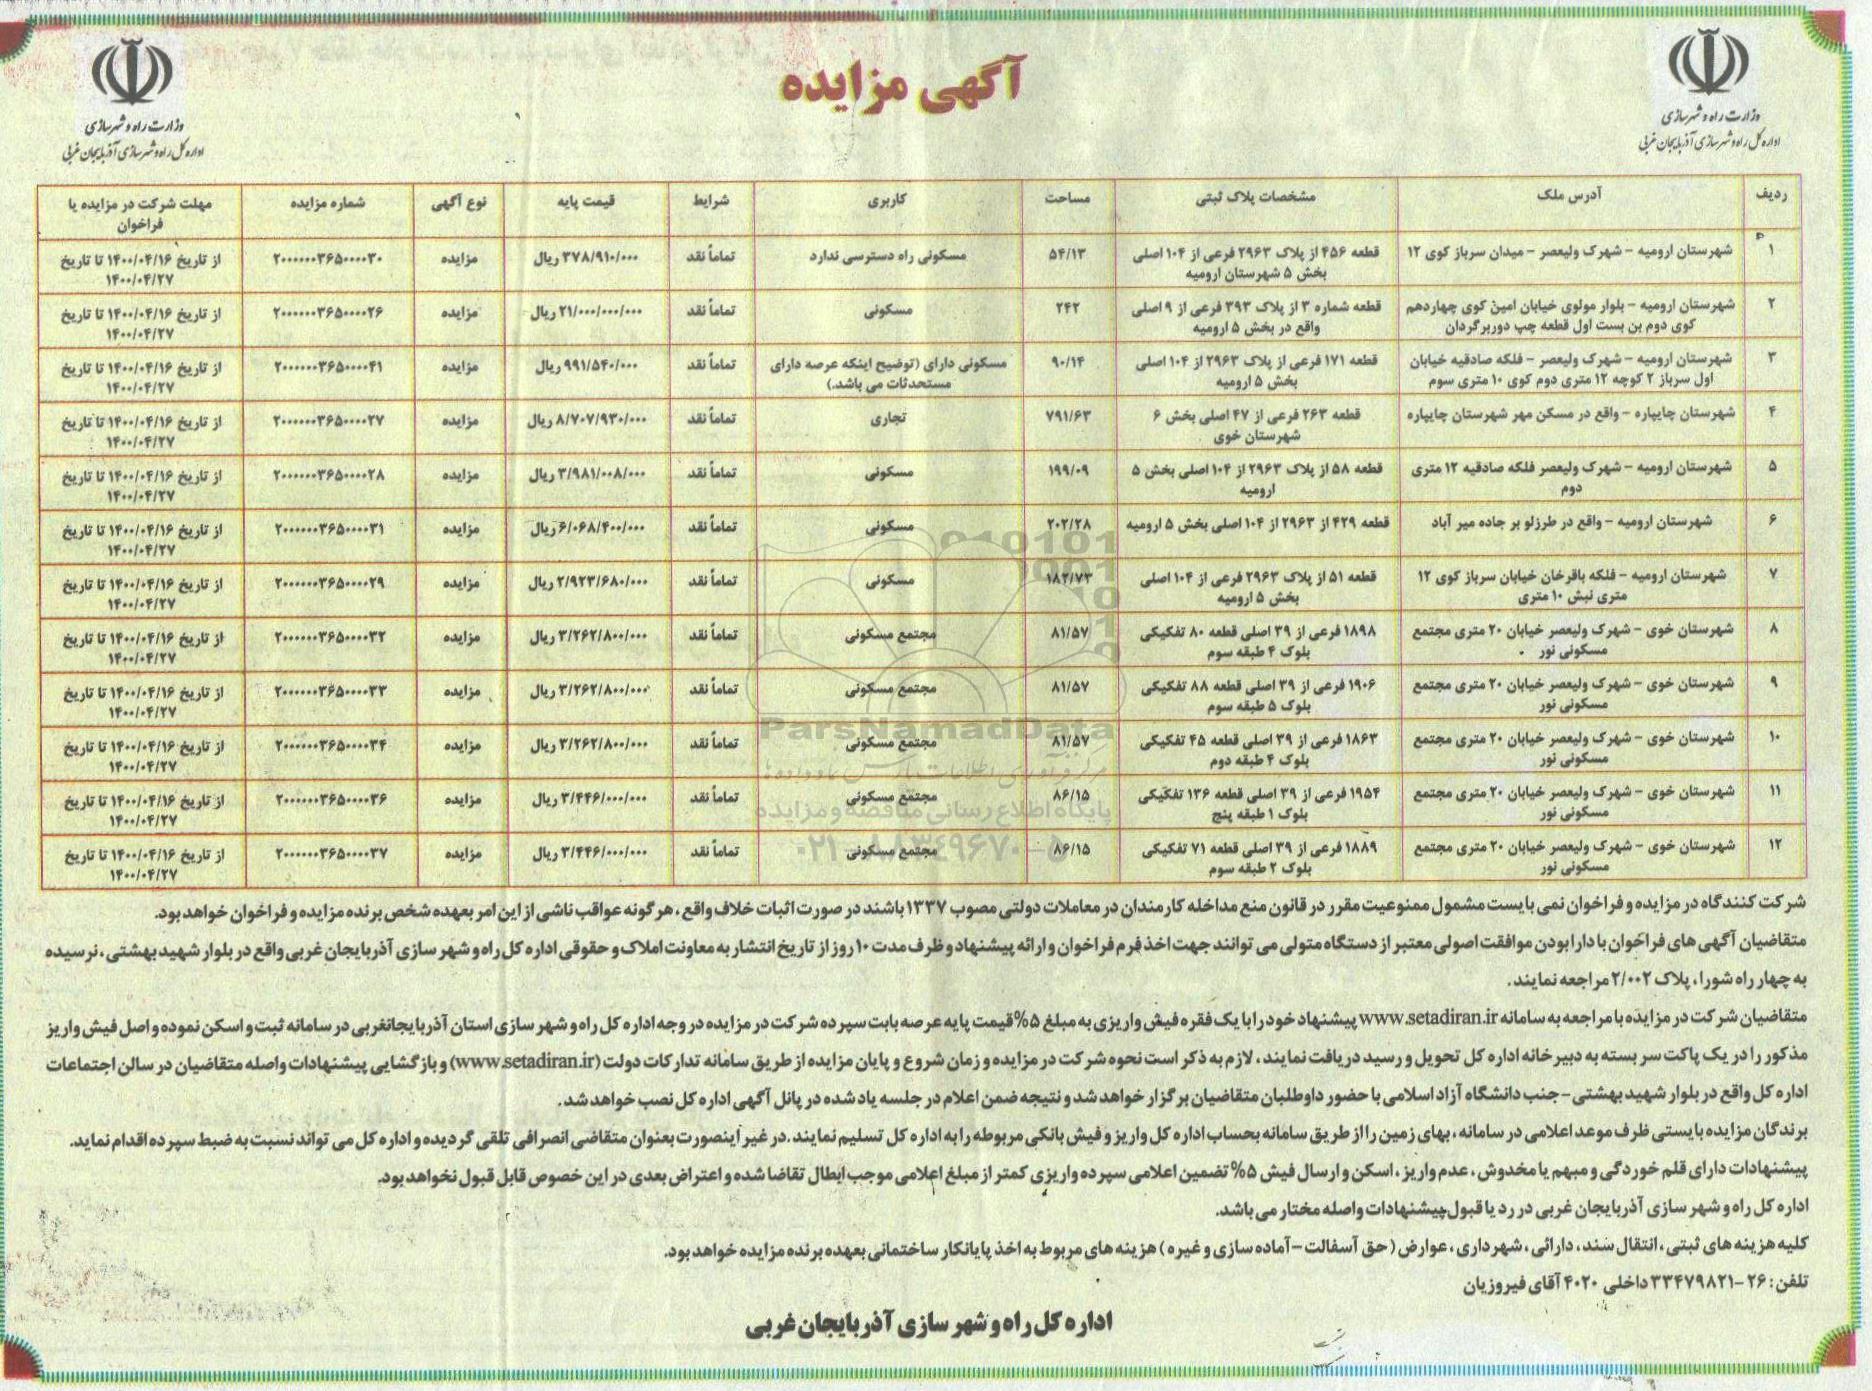 آگهی مزایده
وزارت راه و شهرسازی
اداره کل راه و شهرسازی آذربایجان غربی
وزارت راه و شهرسازی
اداره کل راه و شهرسازی آذربایجان غربی
ردیف | آدرس ملک | مشخصات پلاک ثبتی | مساحت | کاربری | شرایط | قیمت پایه | نوع آگهی | شماره مزایده | مهلت شرکت در مزایده یا فراخوان
۱ | شهرستان ارومیه - شهرک ولیعصر - میدان سرباز کوی ۱۲ | قطعه ۴۵۶ از پلاک ۲۹۶۳ فرعی از ۱۰۴ اصلی بخش ۵ شهرستان ارومیه | ۵۴/۱۳ | مسکونی راه دسترسی ندارد | تماماً نقد | ۳۷۸/۹۱۰/۰۰۰ ریال | مزایده | ۲۰۰۰۰۰۰۳۶۵۰۰۰۰۳۰ | از تاریخ ۱۴۰۰/۰۴/۱۶ تا تاریخ ۱۴۰۰/۰۴/۲۷
۲ | شهرستان ارومیه - بلوار مولوی خیابان امین کوی چهاردهم کوی دوم بن بست اول قطعه چپ دوربرگردان | قطعه شماره ۳ از پلاک ۳۹۳ فرعی از ۹ اصلی واقع در بخش ۵ ارومیه | ۲۴۲ | مسکونی | تماماً نقد | ۲۱/۰۰۰/۰۰۰/۰۰۰ ریال | مزایده | ۲۰۰۰۰۰۰۳۶۵۰۰۰۰۲۶ | از تاریخ ۱۴۰۰/۰۴/۱۶ تا تاریخ ۱۴۰۰/۰۴/۲۷
۳ | شهرستان ارومیه - شهرک ولیعصر - فلکه صادقیه خیابان اول سرباز ۲ کوچه ۱۲ متری دوم کوی ۱۰ متری سوم | قطعه ۱۷۱ فرعی از پلاک ۲۹۶۳ از ۱۰۴ اصلی بخش ۵ ارومیه | ۹۰/۱۴ | مسکونی دارای (توضیح اینکه عرصه دارای مستحدثات می باشد.) | تماماً نقد | ۹۹۱/۵۴۰/۰۰۰ ریال | مزایده | ۲۰۰۰۰۰۰۳۶۵۰۰۰۰۴۱ | از تاریخ ۱۴۰۰/۰۴/۱۶ تا تاریخ ۱۴۰۰/۰۴/۲۷
۴ | شهرستان چایپاره - واقع در مسکن مهر شهرستان چایپاره | قطعه ۲۶۳ فرعی از ۴۷ اصلی بخش ۶ شهرستان خوی | ۷۹۱/۶۳ | تجاری | تماماً نقد | ۸/۷۰۷/۹۳۰/۰۰۰ ریال | مزایده | ۲۰۰۰۰۰۰۳۶۵۰۰۰۰۲۷ | از تاریخ ۱۴۰۰/۰۴/۱۶ تا تاریخ ۱۴۰۰/۰۴/۲۷
۵ | شهرستان ارومیه - شهرک ولیعصر فلکه صادقیه ۱۲ متری دوم | قطعه ۵۸ از پلاک ۲۹۶۳ از ۱۰۴ اصلی بخش ۵ ارومیه | ۱۹۹/۰۹ | مسکونی | تماماً نقد | ۳/۹۸۱/۰۰۸/۰۰۰ ریال | مزایده | ۲۰۰۰۰۰۰۳۶۵۰۰۰۰۲۸ | از تاریخ ۱۴۰۰/۰۴/۱۶ تا تاریخ ۱۴۰۰/۰۴/۲۷
۶ | شهرستان ارومیه - واقع در طرزلو بر جاده میر آباد | قطعه ۴۲۹ از ۲۹۶۳ از ۱۰۴ اصلی بخش ۵ ارومیه | ۲۰۲/۲۸ | مسکونی | تماماً نقد | ۶/۰۶۸/۴۰۰/۰۰۰ ریال | مزایده | ۲۰۰۰۰۰۰۳۶۵۰۰۰۰۳۱ | از تاریخ ۱۴۰۰/۰۴/۱۶ تا تاریخ ۱۴۰۰/۰۴/۲۷
۷ | شهرستان ارومیه - فلکه باقرخان خیابان سرباز کوی ۱۲ متری نبش ۱۰ متری | قطعه ۵۱ از پلاک ۲۹۶۳ فرعی از ۱۰۴ اصلی بخش ۵ ارومیه | ۱۸۲/۷۳ | مسکونی | تماماً نقد | ۲/۹۲۳/۶۸۰/۰۰۰ ریال | مزایده | ۲۰۰۰۰۰۰۳۶۵۰۰۰۰۲۹ | از تاریخ ۱۴۰۰/۰۴/۱۶ تا تاریخ ۱۴۰۰/۰۴/۲۷
۸ | شهرستان خوی - شهرک ولیعصر خیابان ۲۰ متری مجتمع مسکونی نور | ۱۸۹۸ فرعی از ۳۹ اصلی قطعه ۸۰ تفکیکی بلوک ۴ طبقه سوم | ۸۱/۵۷ | مجتمع مسکونی | تماماً نقد | ۳/۲۶۲/۸۰۰/۰۰۰ ریال | مزایده | ۲۰۰۰۰۰۰۳۶۵۰۰۰۰۳۲ | از تاریخ ۱۴۰۰/۰۴/۱۶ تا تاریخ ۱۴۰۰/۰۴/۲۷
۹ | شهرستان خوی - شهرک ولیعصر خیابان ۲۰ متری مجتمع مسکونی نور | ۱۹۰۶ فرعی از ۳۹ اصلی قطعه ۸۸ تفکیکی بلوک ۵ طبقه سوم | ۸۱/۵۷ | مجتمع مسکونی | تماماً نقد | ۳/۲۶۲/۸۰۰/۰۰۰ ریال | مزایده | ۲۰۰۰۰۰۰۳۶۵۰۰۰۰۳۳ | از تاریخ ۱۴۰۰/۰۴/۱۶ تا تاریخ ۱۴۰۰/۰۴/۲۷
۱۰ | شهرستان خوی - شهرک ولیعصر خیابان ۲۰ متری مجتمع مسکونی نور | ۱۸۶۳ فرعی از ۳۹ اصلی قطعه ۴۵ تفکیکی بلوک ۴ طبقه دوم | ۸۱/۵۷ | مجتمع مسکونی | تماماً نقد | ۳/۲۶۲/۸۰۰/۰۰۰ ریال | مزایده | ۲۰۰۰۰۰۰۳۶۵۰۰۰۰۳۴ | از تاریخ ۱۴۰۰/۰۴/۱۶ تا تاریخ ۱۴۰۰/۰۴/۲۷
۱۱ | شهرستان خوی - شهرک ولیعصر خیابان ۲۰ متری مجتمع مسکونی نور | ۱۹۵۴ فرعی از ۳۹ اصلی قطعه ۱۳۶ تفکیکی بلوک ۱ طبقه پنج | ۸۶/۱۵ | مجتمع مسکونی | تماماً نقد | ۳/۴۴۶/۰۰۰/۰۰۰ ریال | مزایده | ۲۰۰۰۰۰۰۳۶۵۰۰۰۰۳۶ | از تاریخ ۱۴۰۰/۰۴/۱۶ تا تاریخ ۱۴۰۰/۰۴/۲۷
۱۲ | شهرستان خوی - شهرک ولیعصر خیابان ۲۰ متری مجتمع مسکونی نور | ۱۸۸۹ فرعی از ۳۹ اصلی قطعه ۷۱ تفکیکی بلوک ۲ طبقه سوم | ۸۶/۱۵ | مجتمع مسکونی | تماماً نقد | ۳/۴۴۶/۰۰۰/۰۰۰ ریال | مزایده | ۲۰۰۰۰۰۰۳۶۵۰۰۰۰۳۷ | از تاریخ ۱۴۰۰/۰۴/۱۶ تا تاریخ ۱۴۰۰/۰۴/۲۷
ParsNamadData
پایگاه اطلاع رسانی مناقصه و مزایده
۰۲۱-۸۸۳۴۹۶۷۰-۵
شرکت کنندگاه در مزایده و فراخوان نمی بایست مشمول ممنوعیت مقرر در قانون منع مداخله کارمندان در معاملات دولتی مصوب ۱۳۳۷ باشند در صورت اثبات خلاف واقع، هرگونه عواقب ناشی از این امر بعهده شخص برنده مزایده و فراخوان خواهد بود.
متقاضیان آگهی های فراخوان با دارا بودن موافقت اصولی معتبر از دستگاه متولی می توانند جهت اخذ فرم فراخوان و ارائه پیشنهاد و ظرف مدت ۱۰ روز از تاریخ انتشار به معاونت املاک و حقوقی اداره کل راه و شهر سازی آذربایجان غربی واقع در بلوار شهید بهشتی، نرسیده
به چهار راه شورا، پلاک ۲/۰۰۲ مراجعه نمایند.
متقاضیان شرکت در مزایده با مراجعه به سامانه www.setadiran.ir پیشنهاد خود را با یک فقره فیش واریزی به مبلغ ۵% قیمت پایه عرصه بابت سپرده شرکت در مزایده در وجه اداره کل راه و شهر سازی استان آذربایجانغربی در سامانه ثبت و اسکن نموده و اصل فیش واریز
مذکور را در یک پاکت سر بسته به دبیرخانه اداره کل تحویل و رسید دریافت نمایند، لازم به ذکر است نحوه شرکت در مزایده و زمان شروع و پایان مزایده از طریق سامانه تدارکات دولت (www.setadiran.ir) و بازگشایی پیشنهادات واصله متقاضیان در سالن اجتماعات
اداره کل واقع در بلوار شهید بهشتی - جنب دانشگاه آزاد اسلامی با حضور داوطلبان متقاضیان برگزار خواهد شد و نتیجه ضمن اعلام در جلسه یاد شده در پانل آگهی اداره کل نصب خواهد شد.
برندگان مزایده بایستی ظرف موعد اعلامی در سامانه، بهای زمین را از طریق سامانه بحساب اداره کل واریز و فیش بانکی مربوطه را به اداره کل تسلیم نمایند. در غیر اینصورت بعنوان متقاضی انصرافی تلقی گردیده و اداره کل می تواند نسبت به ضبط سپرده اقدام نماید.
پیشنهادات دارای قلم خوردگی و مبهم یا مخدوش، عدم واریز، اسکن و ارسال فیش ۵% تضمین اعلامی سپرده واریزی کمتر از مبلغ اعلامی موجب ابطال تقاضا شده و اعتراض بعدی در این خصوص قابل قبول نخواهد بود.
اداره کل راه و شهر سازی آذربایجان غربی در رد یا قبول پیشنهادات واصله مختار می باشد.
کلیه هزینه های ثبتی، انتقال سند، دارائی، شهرداری، عوارض (حق آسفالت - آماده سازی و غیره) هزینه های مربوط به اخذ پایانکار ساختمانی بعهده برنده مزایده خواهد بود.
تلفن: ۲۶-۳۳۴۷۹۸۲۱ داخلی ۴۰۲۰ آقای فیروزیان
اداره کل راه و شهر سازی آذربایجان غربی